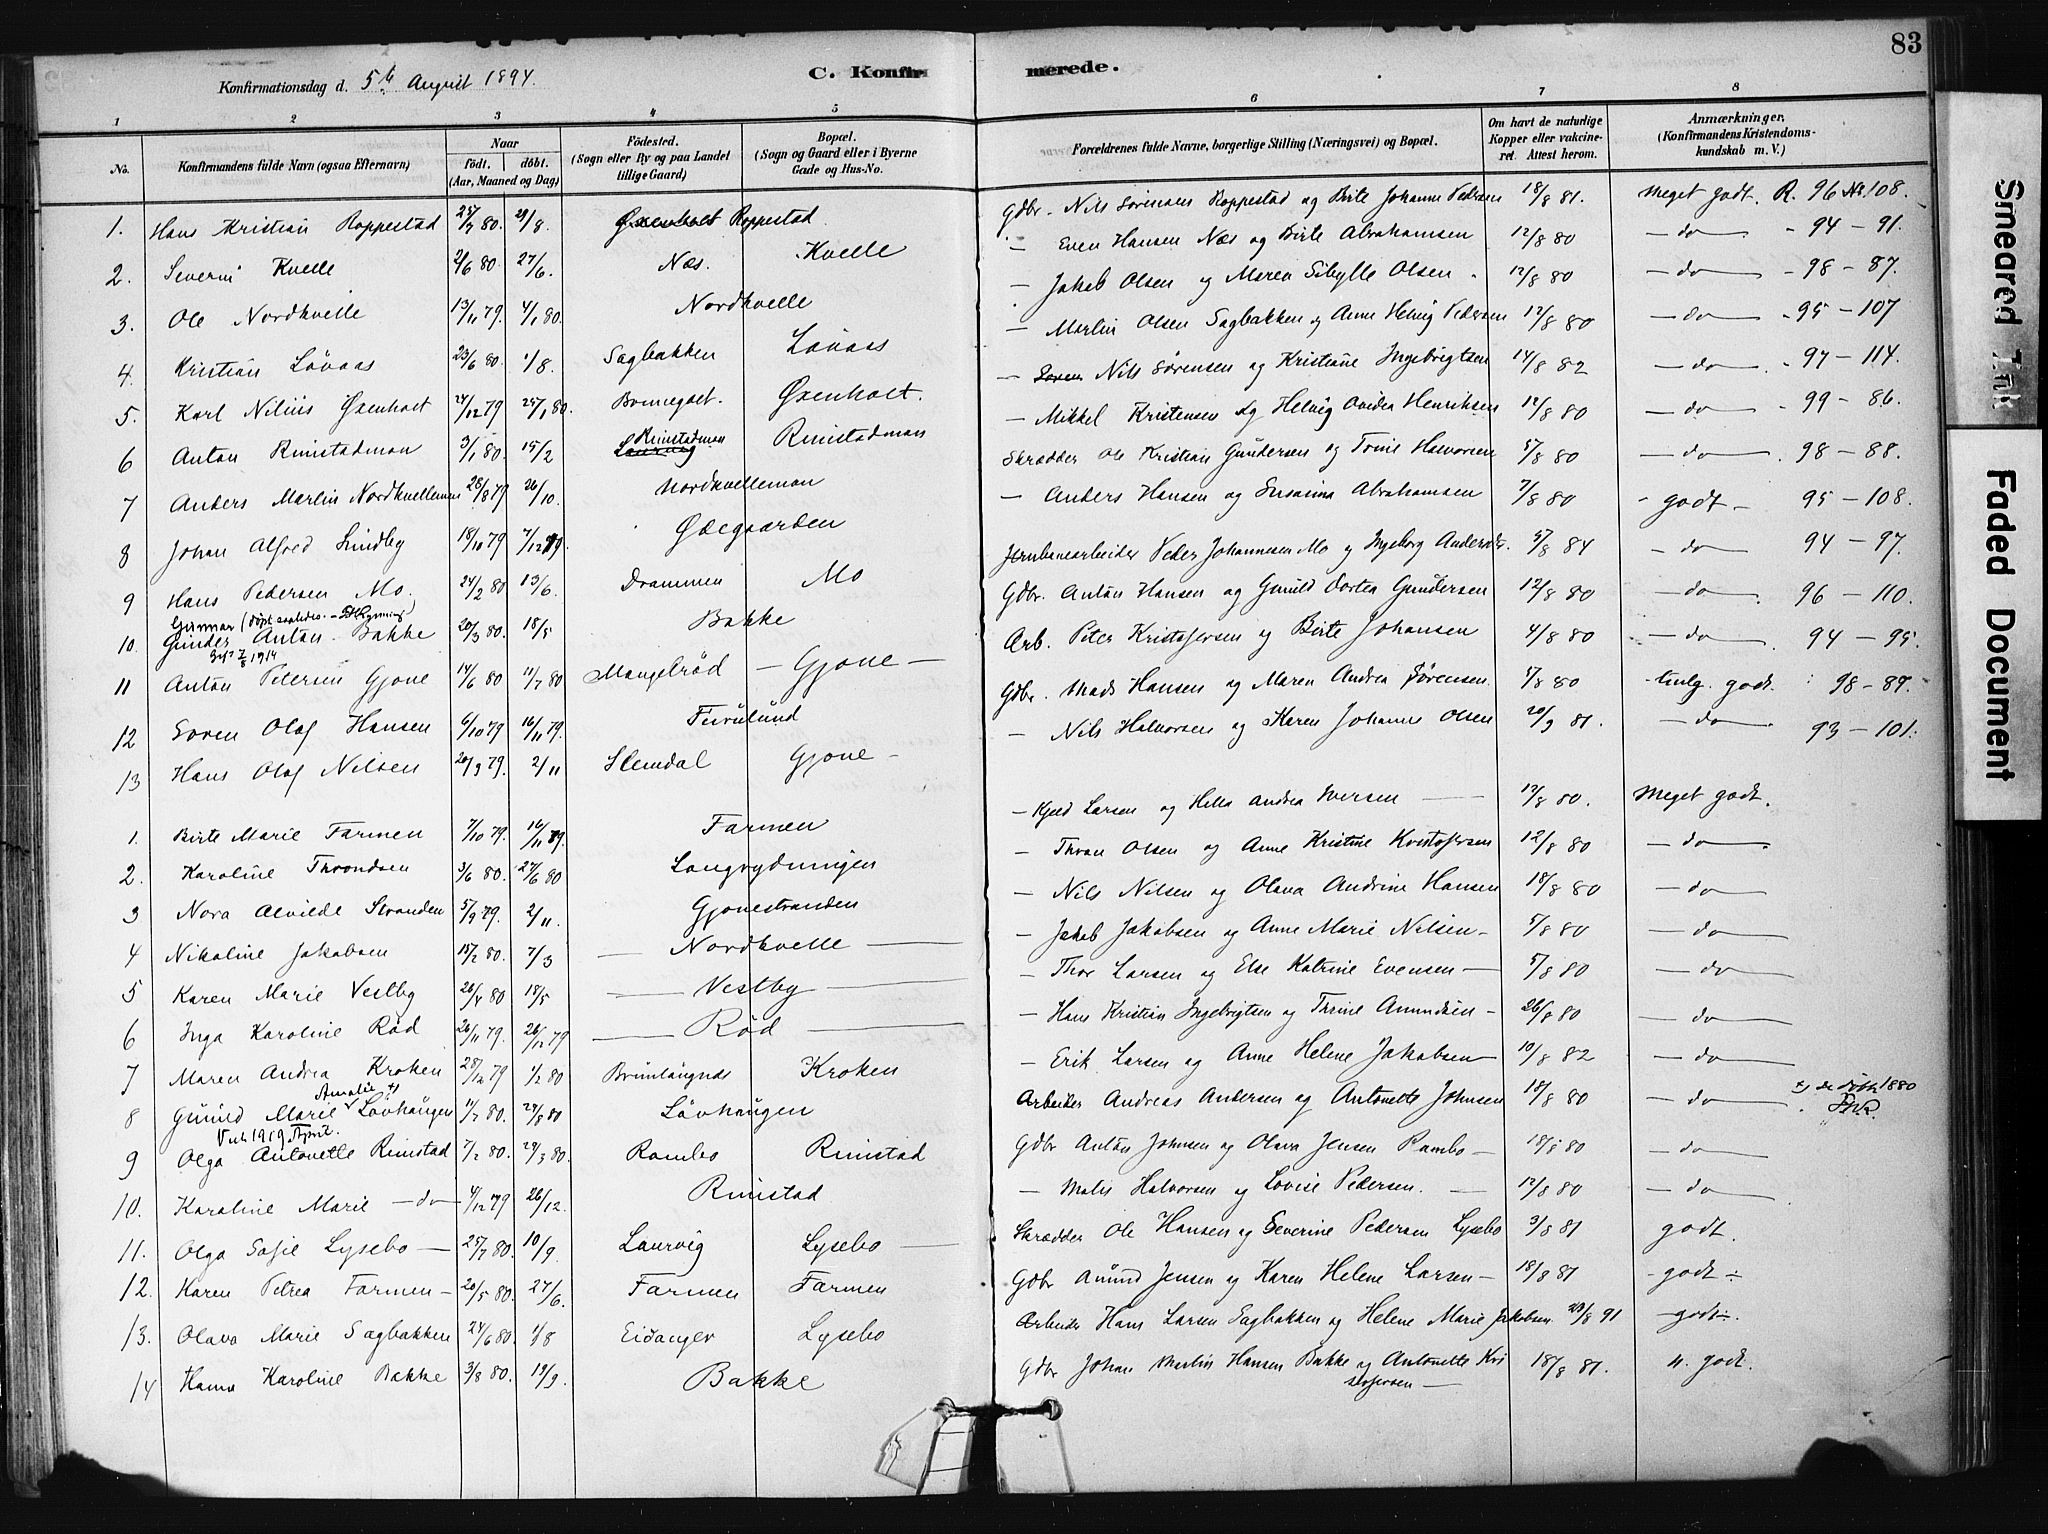 83
Konfirmationsdag d. 5te August 1894.
C. Konfirmerede.
1 2 3 4 5 6 7 8
No.
Konfirmandens fulde Navn (ogsaa Efternavn)
Naar
født. døbt.
(Aar, Maaned og Dag)
Fødested.
(Sogn eller By og paa Landet
tillige Gaard)
Bopæl.
(Sogn og Gaard eller i Byerne
Gade og Hus-No.
Forældrenes fulde Navne, borgerlige Stilling (Næringsvei) og Bopæl.
Om havt de naturlige
Kopper eller vakcine-
ret. Attest herom.
Anmærkninger.
(Konfirmandens Kristendoms-
kundskab m. V.)
1. Hans Kristian Roppestad 25/7 80. 29/8. Øxenholt Roppestad Gdbr. Nils Sørensen Roppestad og Birte Johanne Pedersen 18/8 81. Meget godt. R. 96 No 108.
2. Severin Kvelle 2/6 80. 27/6. Næs. Kvelle — Even Hansen Næs og Birte Abrahamsen 12/8 80 — do — - 94 - 91.
3. Ole Nordkvelle 13/11 79. 4/1 80. Nordkvelle — Jakob Olsen og Maren Sibylle Olsen. 12/8 80 — do — - 98 - 87.
4. Kristian Løvaas 23/6 80. 1/8. Sagbakken Løvaas — Martin Olsen Sagbakken og Anne Helvig Pedersen 12/8 80 — do — - 95 - 107
5. Karl Nilius Øxenholt 24/12 79 25/1 80. Bonnegolt. Øxenholt. — Soren Nils Sørensen og Kristiane Ingebrigtsen 14/8 82 — do — - 97 - 114.
6 Anton Rimstadmoen 3/1 80. 15/2 Laurvig Rimstadmoen Rimstadmoen — Mikkel Kristensen og Helvig Ovidia Henriksen 12/8 80 — do — - 99 - 86.
7 Anders Martin Nordkvellemoen 28/8 79 26/10. Nordkvellemoen Skrædder Ole Kristian Gundersen og Trine Halvorsen 5/8 80 — do — . 98 - 88.
8 Johan Alfred Lindby 18/10 79 7/12 79. Ødegaarden — Anders Hansen og Susanna Abrahamsen 7/8 80 - godt - 95 - 108.
9 Hans Pedersen Mo. 24/2 80 13/6. Drammen Mo Jernbanearbeider Peder Johannesen Mo og Ingeborg Andersdr. 5/8 84 — do — 94 - 97.
Gunnar (døpt saaledes
10. Gunder Anton Bakke 20/3 80. 18/5 Bakke Gdbr. Anton Hansen og Gunild Dortea Gundersen 12/8 80 — do — 96 - 110.
7/8 1914
11 Anton Petersen Gjone 14/6 80 11/7 80 Mangelrød — Gjone — Arb. Peter Kristofersen og Birte Johansen 4/8 80 — do — 94 - 95.
12 Soren Olaf Hansen 6/10 79 16/11 79. Furulund Gdbr. Mads Hansen og Maren Andrea Sørensen. 5/8 80 - temlg. godt. 98 - 89.
13 Hans Olaf Nilsen 20/9 79. 2/11 Stemdal Gjone — — Nils Halvorsen og Karen Johanne Olsen 20/9 81. — do — 93 - 101.
1. Birte Marie Farmen 7/10 79. 16/11 79. Farmen — Kjeld Larsen og Hella Andrea Iversen — 12/8 80. Meget godt.
2. Karoline Throndsen 3/6 80. 27/6 80 Langrydningen — Thron Olsen og Anne Kristine Kristofersen 12/8 80 — do —.
3 Nora Alvilde Stranden 5/9 79. 2/11. Gjonestranden — Nils Nilsen og Olava Andrine Hansen 18/8 80 — do —
4 Nikoline Jakobsen 15/2 80. 7/3 — Nordkvelle — — Jakob Jakobsen og Anne Marie Nilsen - 5/8 80 — do —
5 Karen Marie Vestby 26/4 80 18/5 — Vestby — — Thor Larsen og Else Katrine Evensen — 5/8 80 — do —
6 Inga Karoline Rød 26/11 79. 26/12 79 — Rød — — Hans Kristian Ingebrigtsen og Thrine Amundsen - 26/8 80 — do —
7 Maren Andrea Kroken 28/12 79 1/2 80 Brunlangnæs Kroken — Erik Larsen og Anne Helene Jakobsen — 10/8 82 — do —
Amalie +)
8 Gunild Marie Løvhaugen 11/7 80. 29/8 80 Løvhaugen Arbeider Andreas Andersen og Antonette Johnsen 18/8 80 — do — +) se døbte 1880
1919 April.
9 Olga Antonette Rimstad 7/2 80. 29/3 80. Rambo Rimstad Gdbr Anton Johnsen og Olava Jensen Rambo — 18/8 80 — do —
10. Karoline Marie — do — 4/12 79 26/12. Rimstad — Matis Halvorsen og Lovise Pedersen. — 12/8 80 — do —
11. Olga Sofie Lysebo — 25/7 80. 10/9. Laurvig Lysebo — Skrædder Ole Hansen og Severine Pedersen Lysebo 3/8 81 godt.
12. Karen Petrea Farmen - 20/5 80. 27/6. Farmen Farmen Gdbr Amund Jensen og Karen Helene Larsen — 18/8 81 - godt ÷
13. Olava Marie Sagbakken 24/6 80. 1/8 Eidanger Lysebo Arbeider Hans Larsen Sagbakken og Helene Marie Jakobsen 20/8 91 — godt ÷.
14 Hanna Karoline Bakke 3/8 80. 19/9. Bakke Gdbr Johan Martin Hansen Bakke og Antonette Kri
stofersen — 18/8 81. n. godt.
Smeared Ink
Faded Document